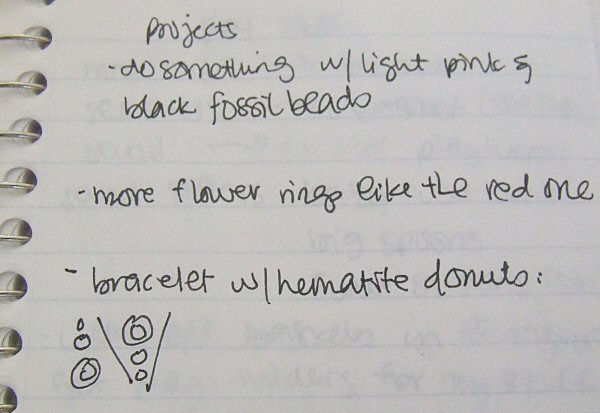 projects
- do something w/ light pink &
black fossil beads
- more flower rings like the red one
- bracelet w/ hematite donuts: